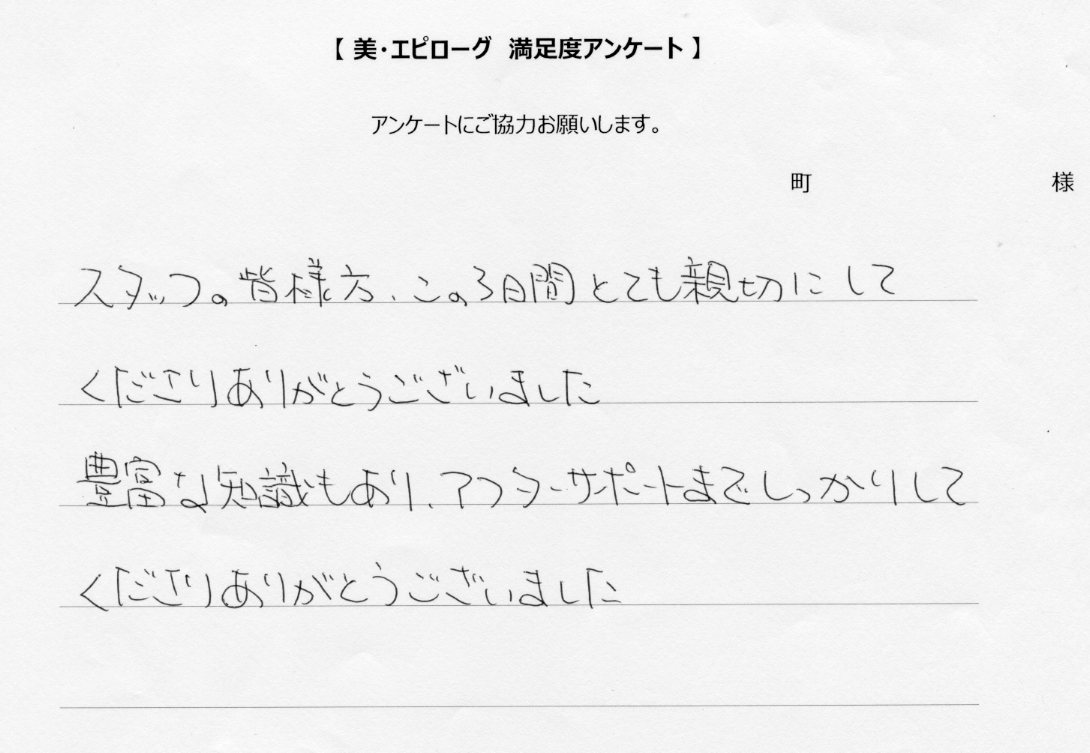 【 美・エピローグ 満足度アンケート 】
アンケートにご協力お願いします。
町 様
スタッフの皆様方、この3日間とても親切にして
くださりありがとうございました
豊富な知識もあり、アフターサポートまでしっかりして
くださりありがとうございました